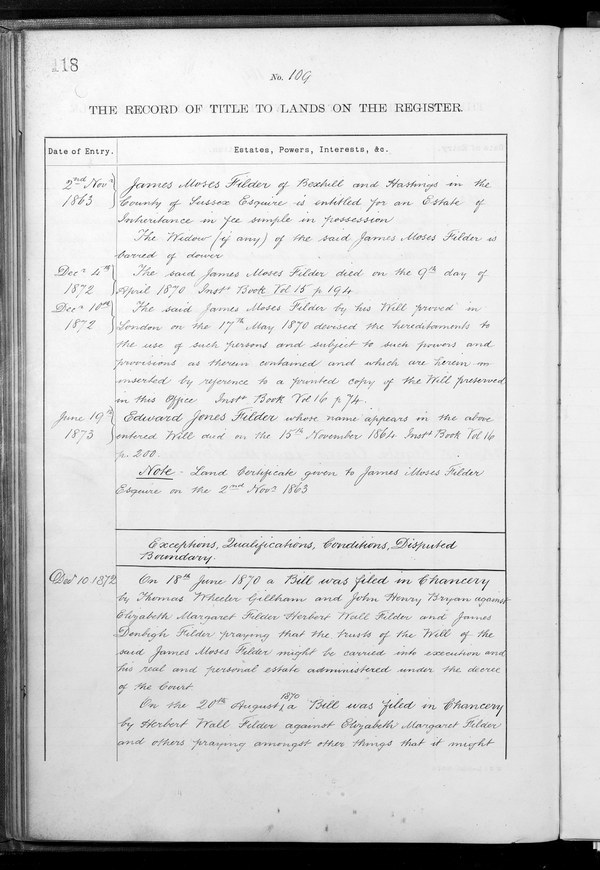 118
No. 109
THE RECORD OF TITLE TO LANDS ON THE REGISTER.
Date of Entry.
Estates, Powers, Interests, &c.
2nd Novr
1863
James Moses Filder of Bexhill and Hastings in the
County of Sussex Esquire is entitled for an Estate of
Inheritance in fee simple in possession
The Widow (if any) of the said James Moses Filder is
barred of dower
Decr 4th
1872
The said James Moses Filder died on the 9th day of
April 1870 Instt Book Vol 15 p 194
Decr 10th
1872
The said James Moses Filder by his Will proved in
London on the 17th May 1870 devised the hereditaments to
the use of such persons and subject to such powers and
provisions as therein contained and which are herein
inserted by reference to a printed copy of the Will preserved
in this Office Instt Book Vol 16 p 74.
June 19th
1873
Edward Jones Filder whose name appears in the above
entered Will died on the 15th November 1864 Instt Book Vol 16
p. 200.
Note - Land Certificate given to James Moses Filder
Esquire on the 2nd Novr 1863
Exceptions, Qualifications, Conditions, Disputed
Boundary.
Decr 10 1872
On 18th June 1870 a Bill was filed in Chancery
by Thomas Wheeler Gillham and John Henry Bryan against
Elizabeth Margaret Filder Herbert Wall Filder and James
Denbigh Filder praying that the trusts of the Will of the
said James Moses Filder might be carried into execution and
his real and personal estate administered under the decree
of the Court
On the 20th August 1870 a Bill was filed in Chancery
by Herbert Wall Filder against Elizabeth Margaret Filder
and others praying amongst other things that it might